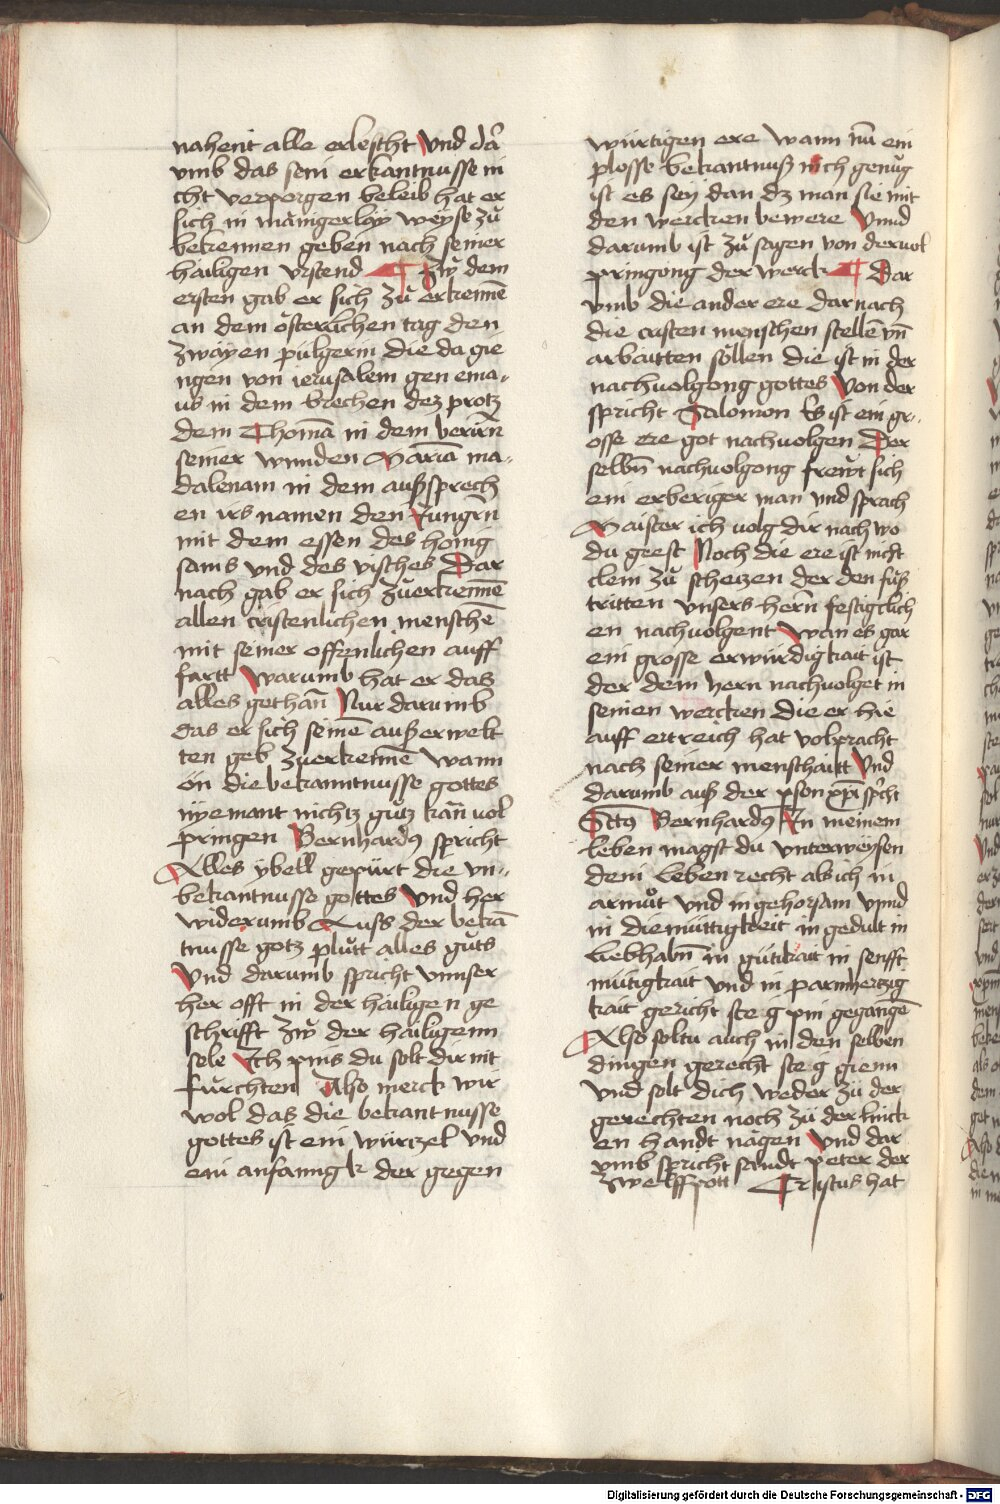 nahent alle erlescht Vnd dar̄
vmb das sein erkantnusse ni
cht verporgen beleib hat er
sich in mäingerlay weyse zů
bekennen geben nach seiner
hailigen vrstend ¶ Zẘ dem
ersten gab er sich zů erkenne͂
an dem österlichen tag den
zwayen pilgerin die da gie
ngen von ierusalem gen ema-
us in dem brechen dez protz
dem Thoma͂ in dem berirn̄
seiner wunden Maria ma-
dalenam in dem außsprech
en irs namen den Jungrn̄
mit dem essen des honig
sams vnd des visches Dar
nach gab er sich zuerkenne͂
allen cristenlichen mensche͂
mit seiner offenlichen auff
fartt Warumb hat er das
alles gethan̄ Nur darumb
das er sich seine͂ außerwelt
ten geb zuerkenne͂ wann
ön die bekanntnusse gottes
nyemant nichtz gutz kan̄ vol
pringen Bernhardꝰ spricht
Alles ybell gepürt die vn-
bekantnusse gottes Vnd her
widerumb Auss der beka͂
tnusse gotz plutt alles guts
Vnd darumb spricht vnnser
her offt in der hailigen ge
schrifft Zẘ der hailigenn
sele Ich pins du solt dir nit
fürchten Also merck wir
wol das die bekantnusse
gottes ist ein würtzel vnd
ein anfanngk der gegen
würtigen ere wann nu͂ ein
plosse bekantnuß nich genug
ist es sey dan dz man sie mit
den wercken bewere Vnnd
darumb ist zů sagen von der uol
pringong der werck ¶ Dar
vmb die ander ere dar nach
die cristen menschen stelle͂ vn̄
arbaitten söllen die ist in der
nachuolgong gottes Von der
spricht Salomon Es ist ein gr-
osse ere got nachuolgen Der
selbn̄ nachuolgong frewt sich
ein erberiger man vnd sprach
Maister ich uolg dir nach wo
du geest Noch die ere ist nicht
clein zů schetzen der den fuß
tritten vnsers hern̄ festigclich
en nachuolgent Wan es gar
ein grosse erwürdigkait ist
der dem hern nachuolget in
seinen wercken die er hie
auff ertreich hat volpracht
nach seiner menschaitt Vnd
darumb auß der pson xp̄i spr̄cht
Sctꝰ Bernhardꝰ In meinem
leben magst du vnterweysen
dein leben recht als ich in
armut vnd in gehorsam vnnd
in diemüttigkeit in gedult in
liebhabn̄ in gütikait in senfft
mütigkait vnd in parmhertzig
kait gericht ste g pin gegange͂
Also soltu auch in den selben
dingen gerecht ste g gienn
Vnd solt dich weder zu der
gerechten noch zu der linck
en handt nägen Vnd dar
vmb spricht sandt peter der
zwelffpott Cristus hat